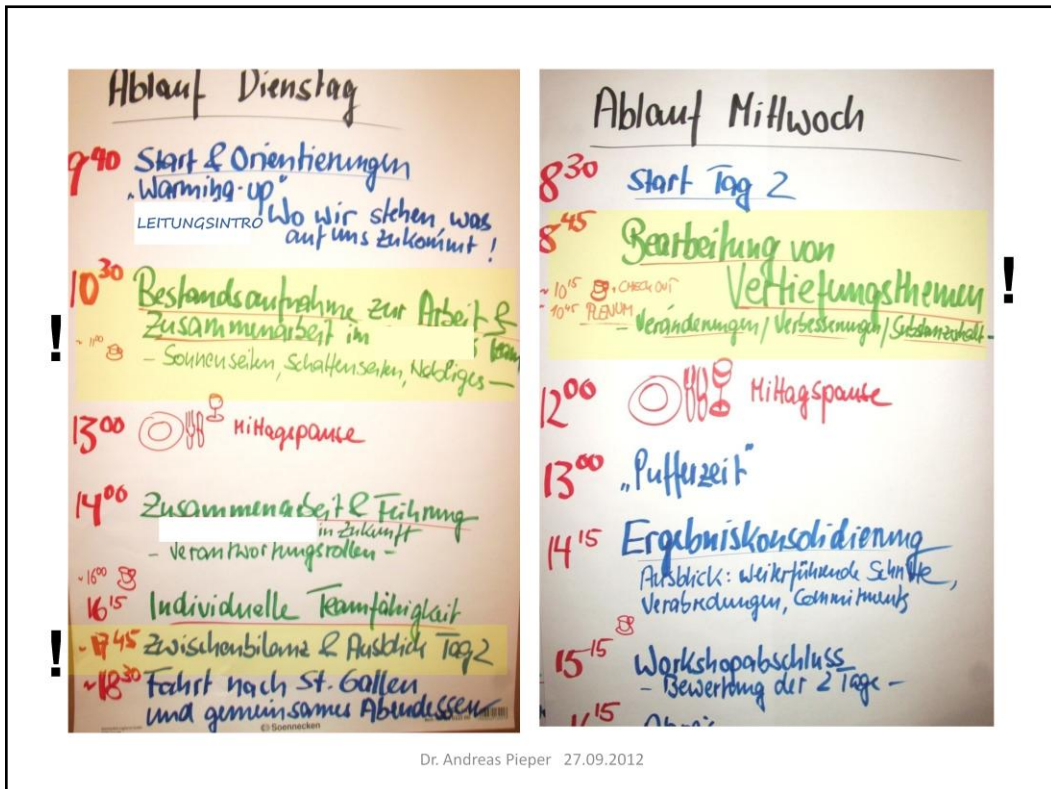 Ablauf Dienstag
9⁴⁰ Start & Orientierungen
„Warming-up"
LEITUNGSINTRO Wo wir stehen, was
auf uns zukommt!
10³⁰ Bestandsaufnahme zur Arbeit &
! Zusammenarbeit im Team
~ 11⁰⁰ – Sonnenseiten, Schattenseiten, Nebliges –
13⁰⁰ Mittagspause
14⁰⁰ Zusammenarbeit & Führung
in Zukunft
– Verantwortungsrollen –
~ 16⁰⁰
16¹⁵ Individuelle Teamfähigkeit
! ~ 17⁴⁵ Zwischenbilanz & Ausblick Tag 2
~ 18³⁰ Fahrt nach St. Gallen
und gemeinsames Abendessen
Soennecken
Ablauf Mittwoch
8³⁰ Start Tag 2
8⁴⁵ Bearbeitung von
Vertiefungsthemen !
~ 10¹⁵ , CHECK OUT
~ 10⁴⁵ PLENUM
– Veränderungen / Verbesserungen / Substanzerhalt –
12⁰⁰ Mittagspause
13⁰⁰ „Pufferzeit"
14¹⁵ Ergebniskonsolidierung
Ausblick: weiterführende Schritte,
Verabredungen, Commitments
15¹⁵ Workshopabschluss
– Bewertung der 2 Tage –
Dr. Andreas Pieper 27.09.2012